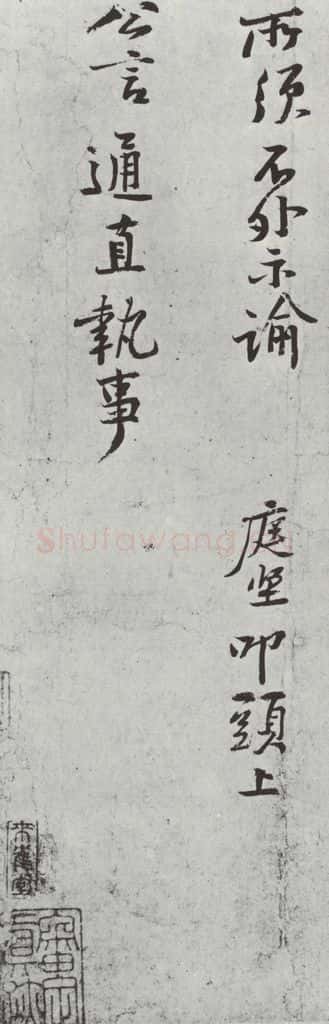 所須不外示諭
庭堅叩頭上
公言通直執事